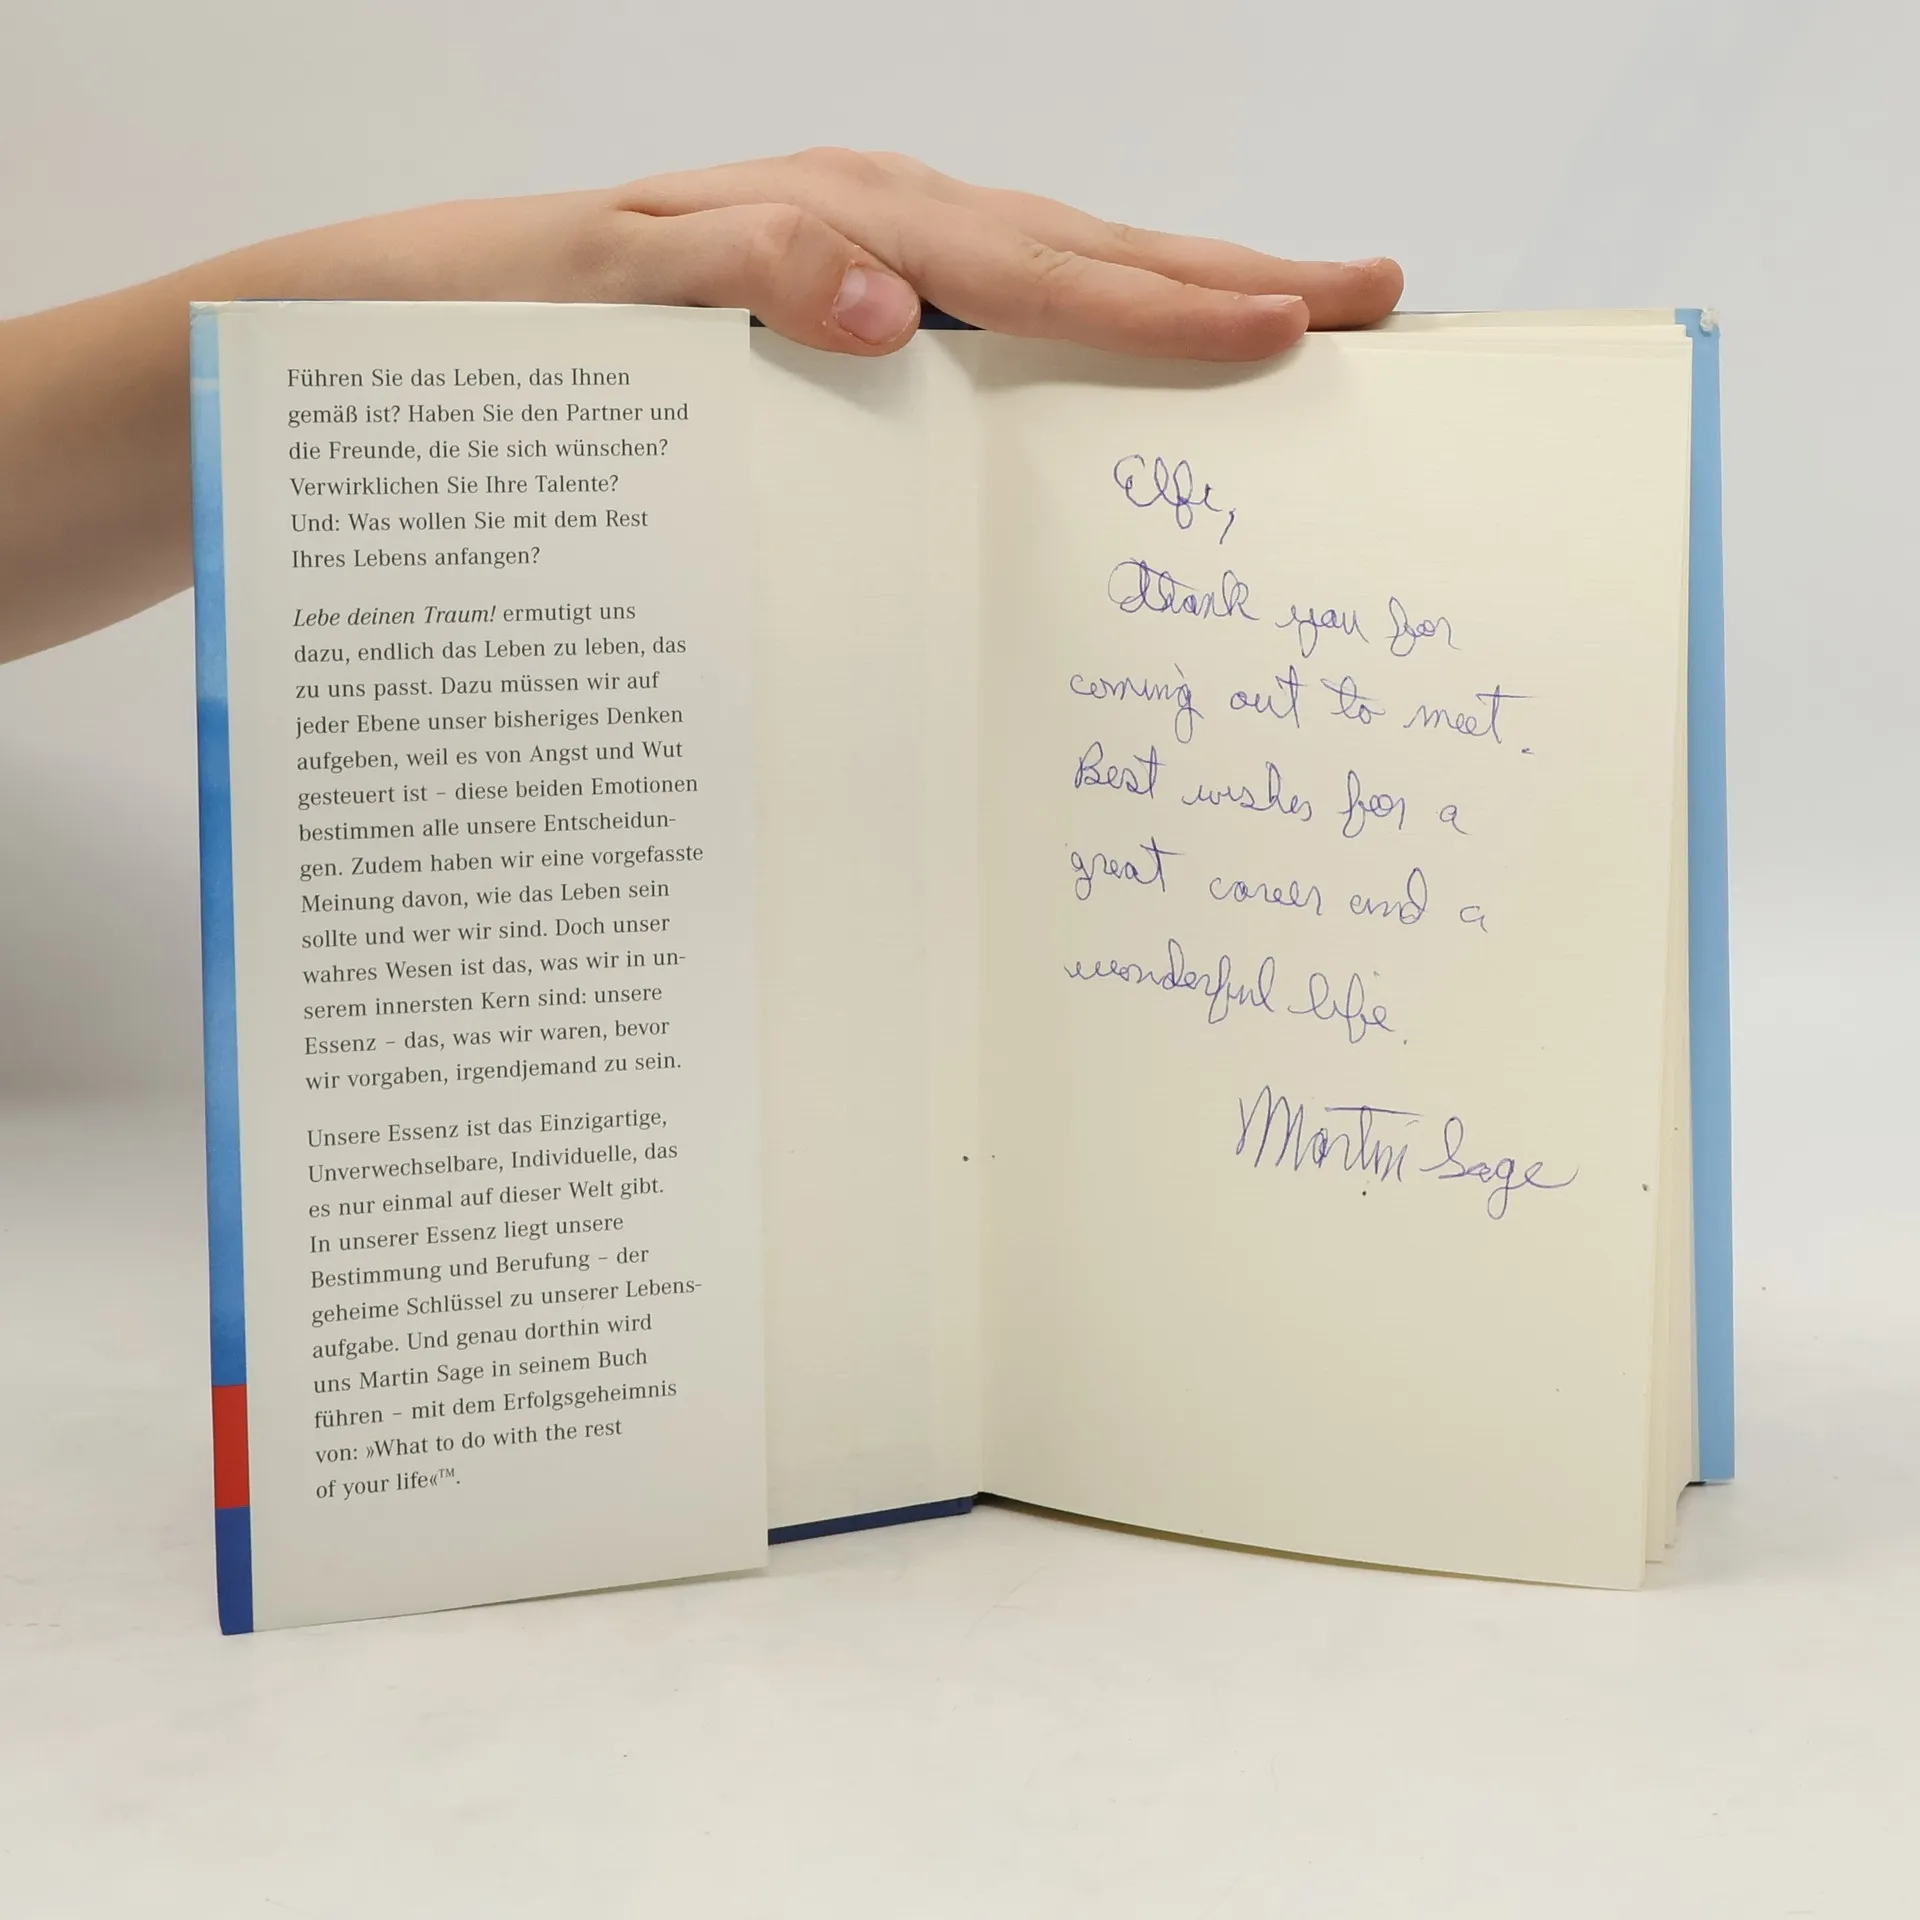 Führen Sie das Leben, das Ihnen
gemäß ist? Haben Sie den Partner und
die Freunde, die Sie sich wünschen?
Verwirklichen Sie Ihre Talente?
Und: Was wollen Sie mit dem Rest
Ihres Lebens anfangen?
Lebe deinen Traum! ermutigt uns
dazu, endlich das Leben zu leben, das
zu uns passt. Dazu müssen wir auf
jeder Ebene unser bisheriges Denken
aufgeben, weil es von Angst und Wut
gesteuert ist – diese beiden Emotionen
bestimmen alle unsere Entscheidun-
gen. Zudem haben wir eine vorgefasste
Meinung davon, wie das Leben sein
sollte und wer wir sind. Doch unser
wahres Wesen ist das, was wir in un-
serem innersten Kern sind: unsere
Essenz – das, was wir waren, bevor
wir vorgaben, irgendjemand zu sein.
Unsere Essenz ist das Einzigartige,
Unverwechselbare, Individuelle, das
es nur einmal auf dieser Welt gibt.
In unserer Essenz liegt unsere
Bestimmung und Berufung – der
geheime Schlüssel zu unserer Lebens-
aufgabe. Und genau dorthin wird
uns Martin Sage in seinem Buch
führen – mit dem Erfolgsgeheimnis
von: »What to do with the rest
of your life«™.
Elfi,
Thank you for
coming out to meet.
Best wishes for a
great career and a
wonderful life.
Martin Sage